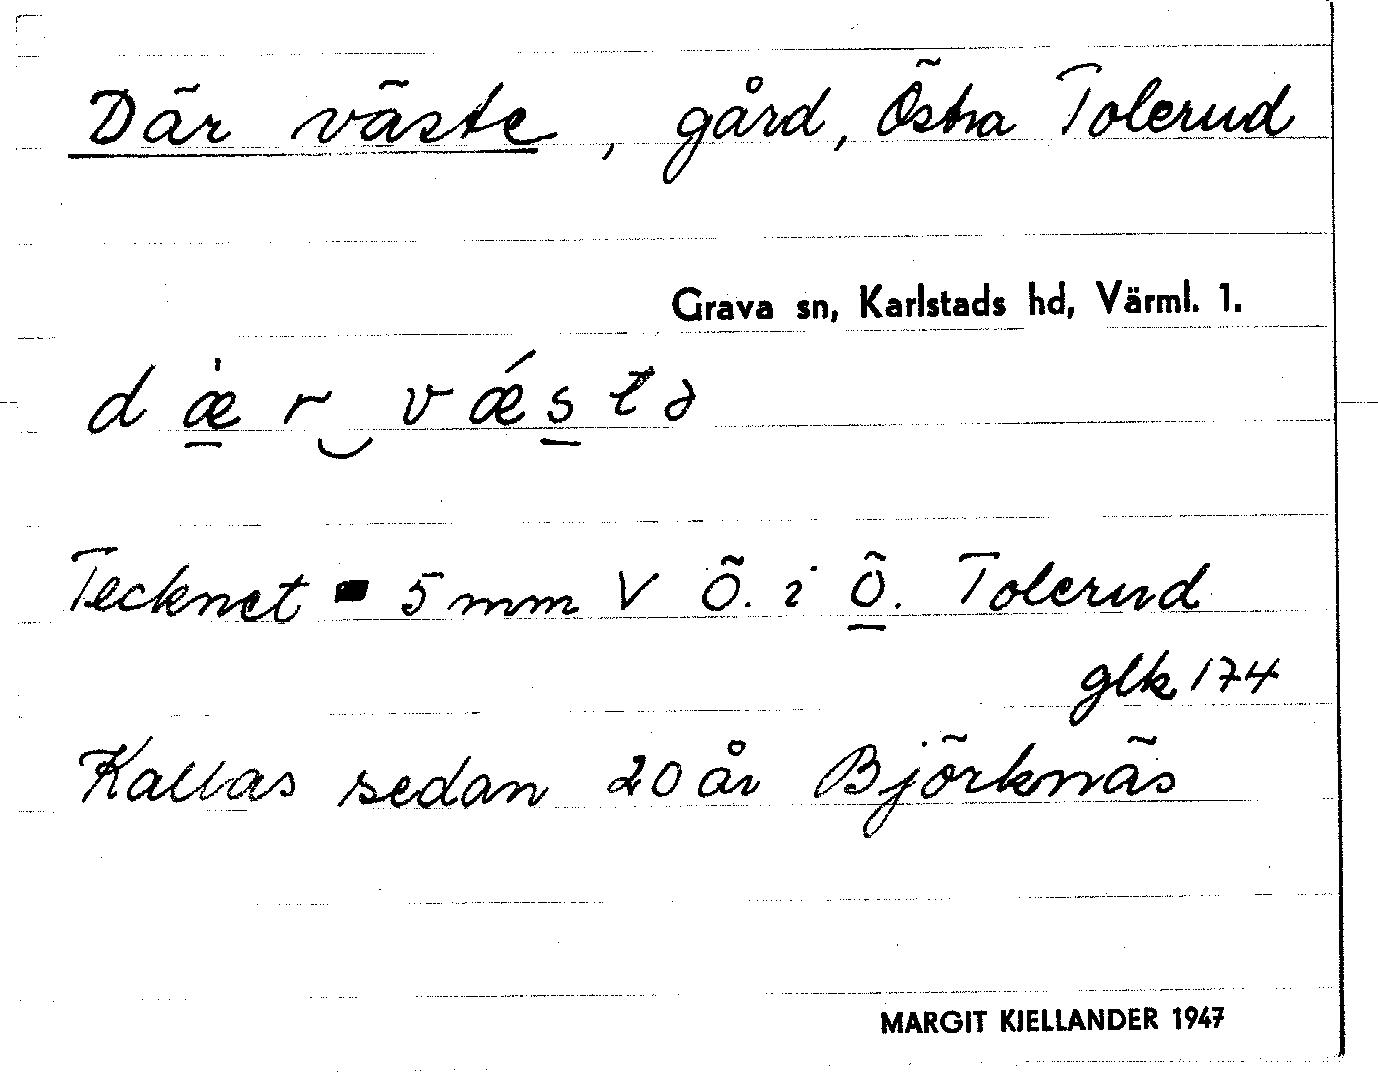 Där väste, gård, Östra Tolerud
Grava sn, Karlstads hd, Värml. 1.
dæ̱̀r‿vǽs̱tə
Tecknet ▪ 5 mm V Ö. i Ö̱. Tolerud
glk 174
Kallas sedan 20 år Björknäs
MARGIT KJELLANDER 1947